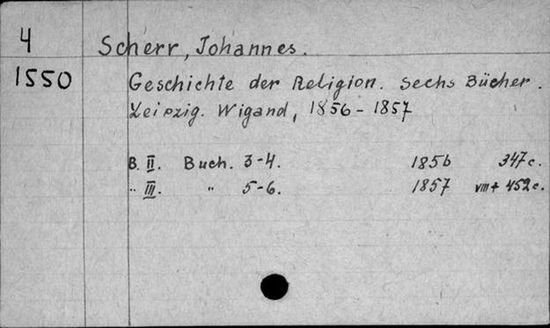 4 Scherr, Johannes.
1550 Geschichte der Religion. Sechs Bücher.
Leipzig. Wigand, 1856-1857
B. II. Buch. 3-4. 1856 347c.
" III. " 5-6. 1857 VIII+452c.